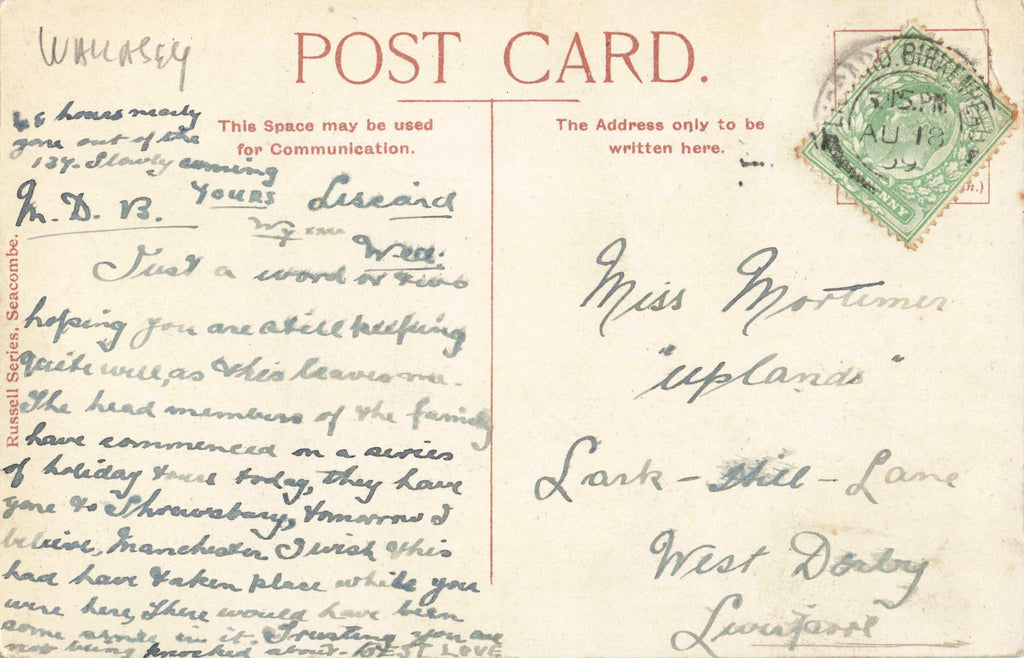 WALLASEY
POST CARD.
This Space may be used
for Communication.
The Address only to be
written here.
LISCARD. BIRKENHEAD
5.15 PM
AU 18
09
PENNY
48 hours nearly
gone out of the
137. Slowly coming
YOURS
M. D. B.
Liscard
Wed.
Just a word or two
hoping you are still keeping
quite well, as this leaves me.
The head members of the family
have commenced on a series
of holiday tours today, they have
gone to Shrewsbury, tomorrow I
believe, Manchester I wish this
had have taken place while you
were here, There would have been
some sense in it. Trusting you are
not being knocked about. BEST LOVE
Russell Series, Seacombe.
Miss Mortimer
"Uplands"
Lark-Hill-Lane
West Derby
Liverpool